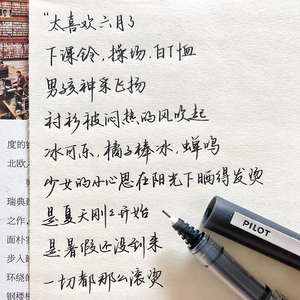 “太喜欢六月了
下课铃，操场，白T恤
男孩神采飞扬
衬衫被闷热的风吹起
冰可乐，橘子棒冰，蝉鸣
少女的小心思在阳光下晒得发烫
是夏天刚刚开始
是暑假还没到来
一切都那么滚烫
PILOT
度的
北欧
瑞典
之作
面朴实
步入
环绕的
钢楼梯